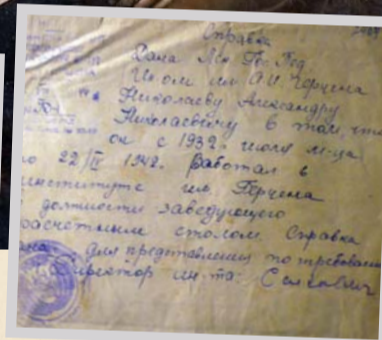 Справка
Дана Лен. Гос. Пед.
Ин-ом им. А.И. Герцена
Николаеву Александру
Николаевичу в том, что
он с 1932 г. июля м-ца
по 22/IV 1942. Работал в
институте им. Герцена
в должности заведующего
расчетным столом. Справка
дана для представления по требованию
Директор ин-та: